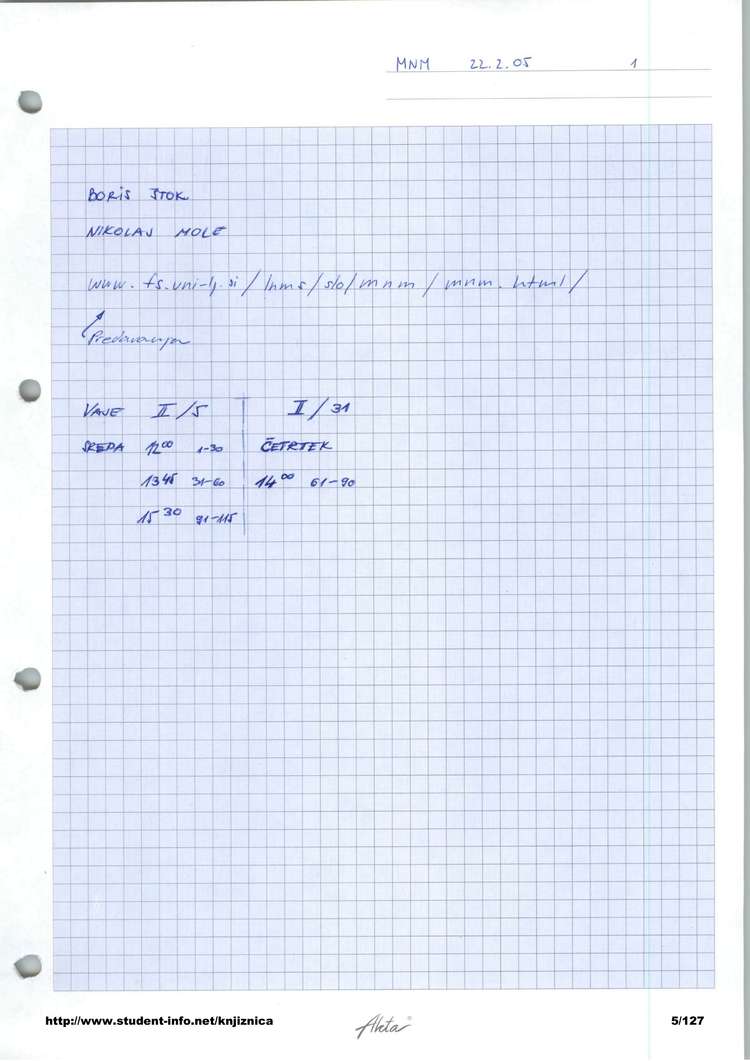 MNM 22.2.05 1
BORIS ŠTOK
NIKOLAJ MOLE
www.fs.uni-lj.si/lnms/slo/mnm/mnm.html/
Predavanja
VAJE II/5 I/31
SREDA 12⁰⁰ 1-30 ČETRTEK
13⁴⁵ 31-60 14⁰⁰ 61-90
15³⁰ 91-115
http://www.student-info.net/knjiznica Ahta 5/127